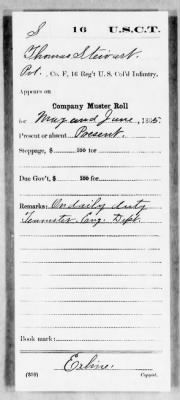 S 16 U.S.C.T.
Thomas Stewart
Pvt., Co. F, 16 Reg't U. S. Col'd Infantry.
Appears on
Company Muster Roll
for May and June, 1865.
Present or absent Present.
Stoppage, $ 100 for
Due Gov't, $ 100 for
Remarks: On daily duty
Teamster Eng. Dept.
Book mark:
Erline.
(359) Copyist.